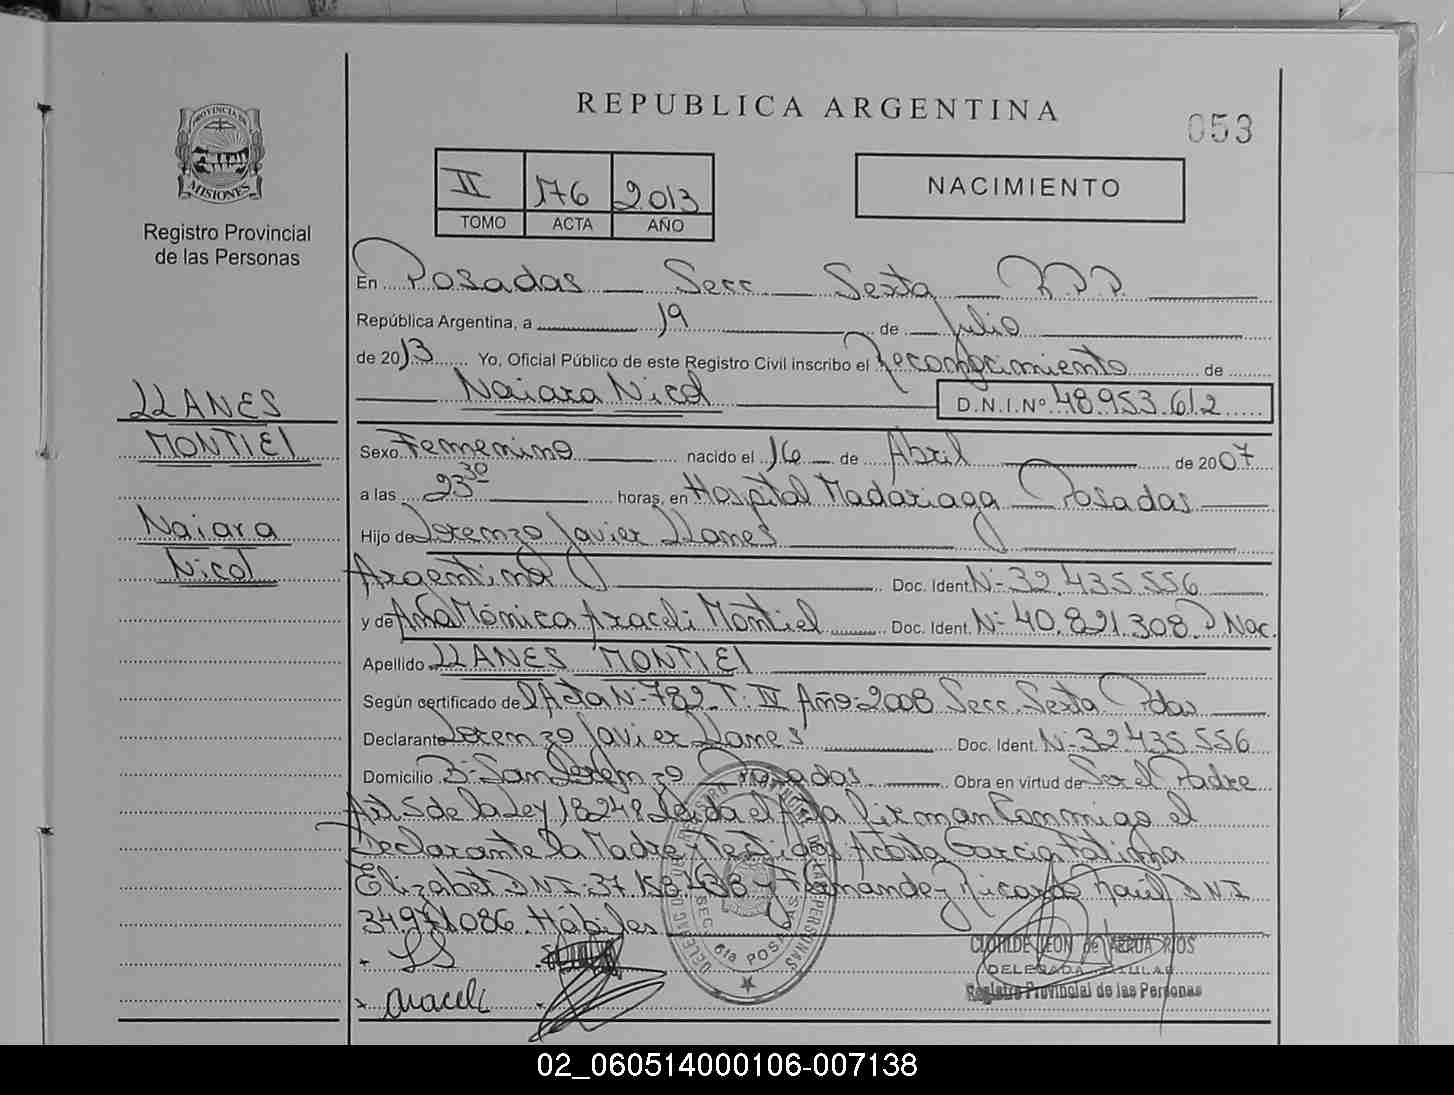 REPUBLICA ARGENTINA
053
PROVINCIA DE
MISIONES
Registro Provincial
de las Personas
II 176 2013
TOMO ACTA AÑO
NACIMIENTO
En Posadas Secc. Sexta R.P.P.
República Argentina, a 19 de Julio
de 2013 Yo, Oficial Público de este Registro Civil inscribo el Reconocimiento de
Naiara Nicol D.N.I.Nº 48.953.612
LLANES
MONTIEL
Naiara
Nicol
Sexo Femenino nacido el 16 de Abril de 2007
a las 23 30 horas, en Hospital Madariaga Posadas
Hijo de Lorenzo Javier Llanes
Argentina Doc. Ident. Nº 32.435.556
y de Ana Mónica Araceli Montiel Doc. Ident. Nº 40.821.308 Nac.
Apellido LLANES MONTIEL
Según certificado del Acta Nº 782 T. IV Año 2008 Secc. Sexta Pdas
Declarante Lorenzo Javier Llanes Doc. Ident. Nº 32.435.556
Domicilio Bº San Lorenzo Posadas Obra en virtud de Ser el Padre
Art. 5 de la Ley 18248 Leida el Acta firman Conmigo el
Declarante la Madre y Testigos Acosta Garcia Fatima
Elizabet D.N.I. 37.158.438 y Fernandez Ricardo Raúl D.N.I
34.971.086. Hábiles
Araceli
SEC. 6ta POSADAS
CLOTILDE LEON de
DELEGADA TITULAR
Registro Provincial de las Personas
02_060514000106-007138